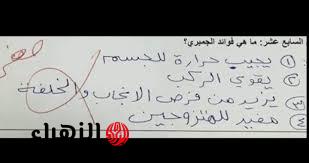 السابع عشر: ما هي فوائد الجمبري؟
① يجيب حرارة للجسم
② يقوي الركب
③ يزيد من فرص الانجاب والخلفة
④ مفيد للمتزوجين
الزهراء